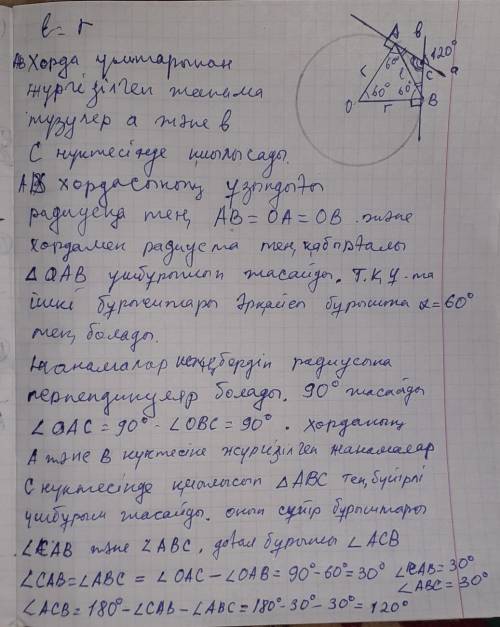 ℓ = r
A в 120° a
60° ℓ C
r 60° 60°
O r B
AB Хорда ұштарынан
жүргізілген жанама
түзулер а және в
С нүктесінде қиылысады.
AB хордасының ұзындығы
радиусқа тең, AB = OA = OB. және
хордамен радиуста тең қабырғалы
△OAB үшбұрышын жасайды. Т.Қ.Ү-та
ішкі бұрыштары әрқайсы бұрышына α=60°
тең болады.
Жанамалар шеңбердің радиусына
перпендикуляр болады. 90° жасайды
∠OAC = 90° - ∠OBC = 90°. хорданың
A және B нүктесіне жүргізілген жанамалар
C нүктесінде қиылысып △ABC теңбүйірлі
үшбұрыш жасайды. оның сүйір бұрыштары
∠CAB және ∠ABC, доғал бұрышы ∠ACB
∠CAB=∠ABC = ∠OAC - ∠OAB = 90°-60°=30° ∠CAB=30°
∠ABC=30°
∠ACB=180°-∠CAB-∠ABC=180°-30°-30°=120°